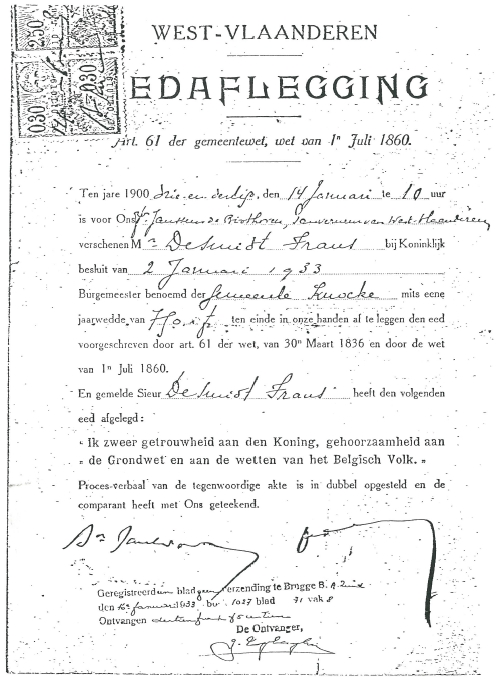 2.50
0.30
0.30
WEST-VLAANDEREN
EDAFLEGGING
Art. 61 der gemeentewet, wet van 1n Juli 1860.
Ten jare 1900 drie en dertig, den 14 Januari te 10 uur
is voor Ons, Janssens de Bisthoven, Gouverneur van West-Vlaanderen
verschenen Mr Desmidt Frans bij Koninklijk
besluit van 2 Januari 1933
Burgemeester benoemd der Gemeente Knocke mits eene
jaarwedde van ten einde in onze handen af te leggen den eed
voorgeschreven door art. 61 der wet, van 30n Maart 1836 en door de wet
van 1n Juli 1860.
En gemelde Sieur Desmidt Frans heeft den volgenden
eed afgelegd:
"Ik zweer getrouwheid aan den Koning, gehoorzaamheid aan
„ de Grondwet en aan de wetten van het Belgisch Volk. „
Proces-verbaal van de tegenwoordige akte is in dubbel opgesteld en de
comparant heeft met Ons geteekend.
Geregistreerd een blad geen verzending te Brugge B. A.
den 16n Januari 1933 boek 1037 blad 71 vak 8
Ontvangen
De Ontvanger,